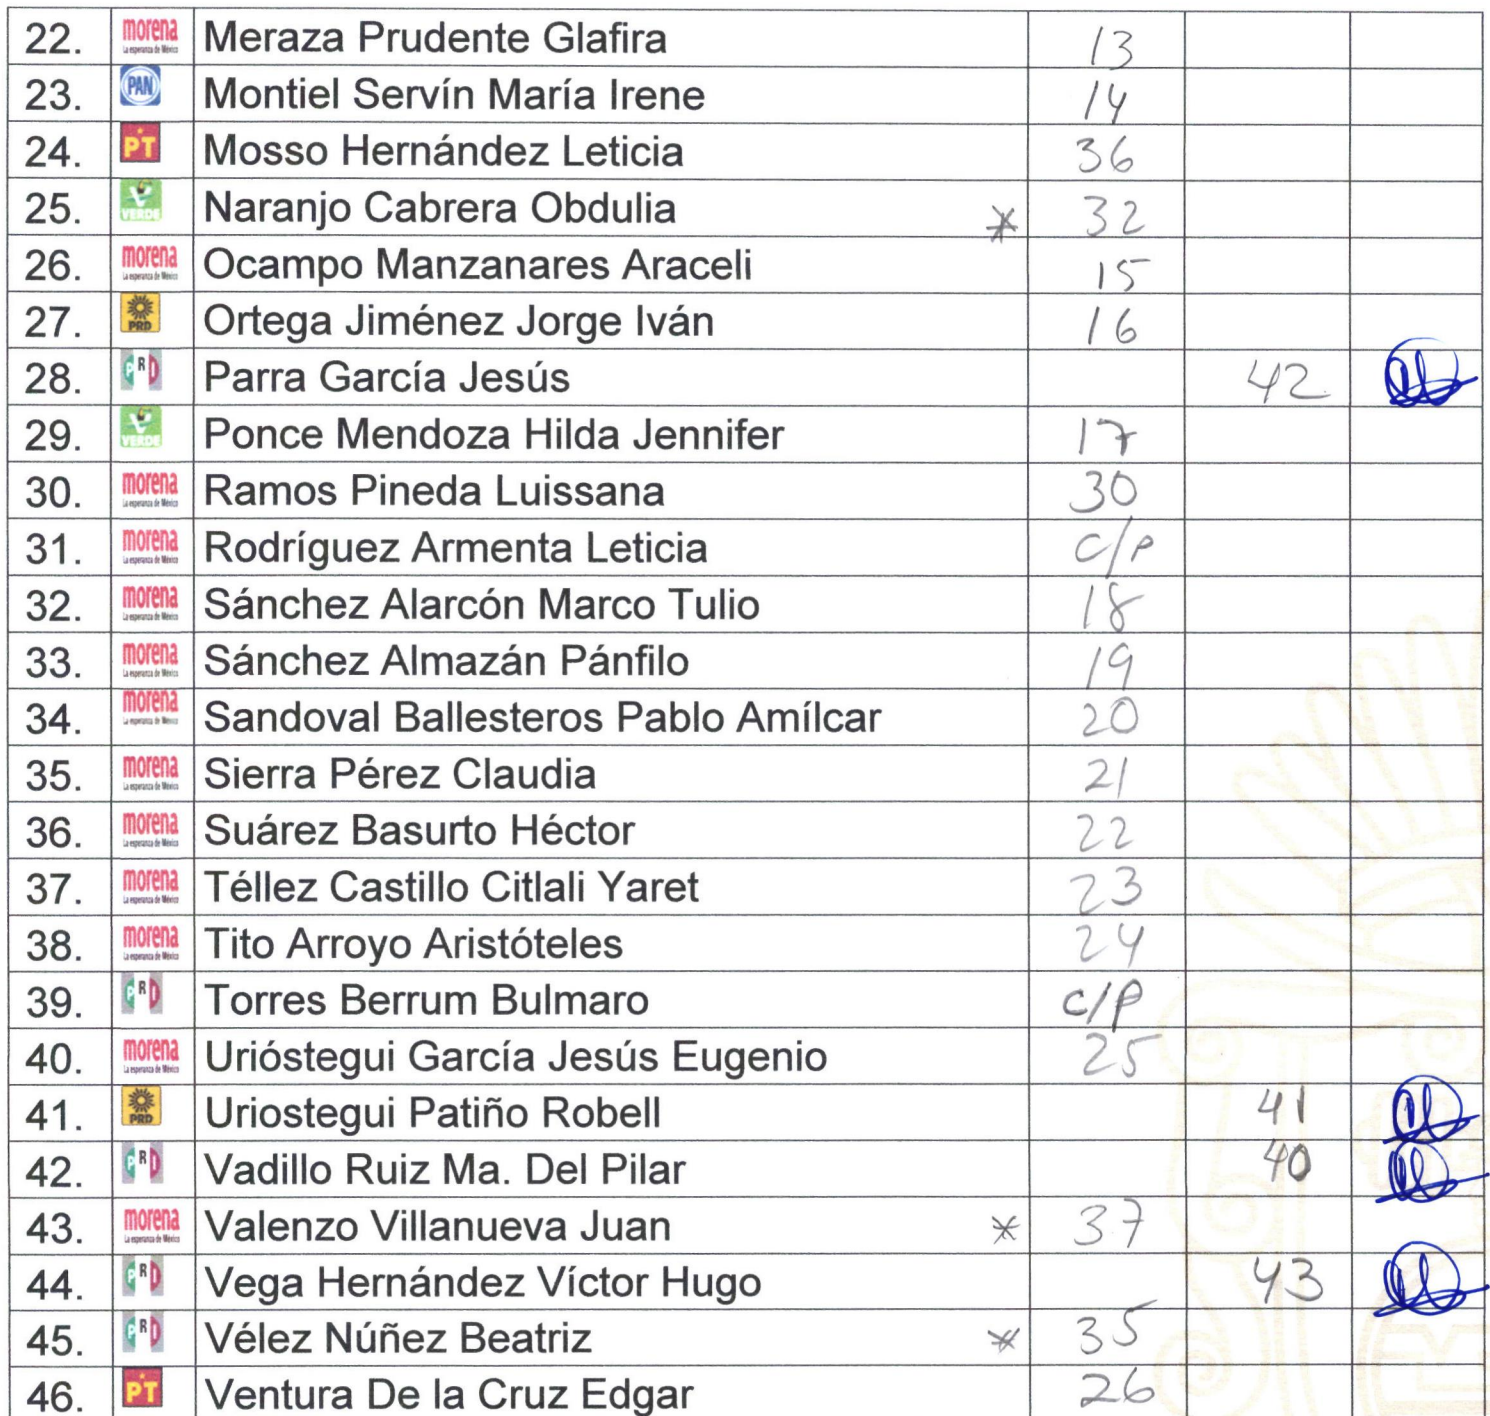 22. morena La esperanza de México Meraza Prudente Glafira 13
23. PAN Montiel Servín María Irene 14
24. PT Mosso Hernández Leticia 36
25. VERDE Naranjo Cabrera Obdulia * 32
26. morena La esperanza de México Ocampo Manzanares Araceli 15
27. PRD Ortega Jiménez Jorge Iván 16
28. PRI Parra García Jesús 42
29. VERDE Ponce Mendoza Hilda Jennifer 17
30. morena La esperanza de México Ramos Pineda Luissana 30
31. morena La esperanza de México Rodríguez Armenta Leticia c/p
32. morena La esperanza de México Sánchez Alarcón Marco Tulio 18
33. morena La esperanza de México Sánchez Almazán Pánfilo 19
34. morena La esperanza de México Sandoval Ballesteros Pablo Amílcar 20
35. morena La esperanza de México Sierra Pérez Claudia 21
36. morena La esperanza de México Suárez Basurto Héctor 22
37. morena La esperanza de México Téllez Castillo Citlali Yaret 23
38. morena La esperanza de México Tito Arroyo Aristóteles 24
39. PRI Torres Berrum Bulmaro c/p
40. morena La esperanza de México Urióstegui García Jesús Eugenio 25
41. PRD Uriostegui Patiño Robell 41
42. PRI Vadillo Ruiz Ma. Del Pilar 40
43. morena La esperanza de México Valenzo Villanueva Juan * 37
44. PRI Vega Hernández Víctor Hugo 43
45. PRI Vélez Núñez Beatriz * 35
46. PT Ventura De la Cruz Edgar 26